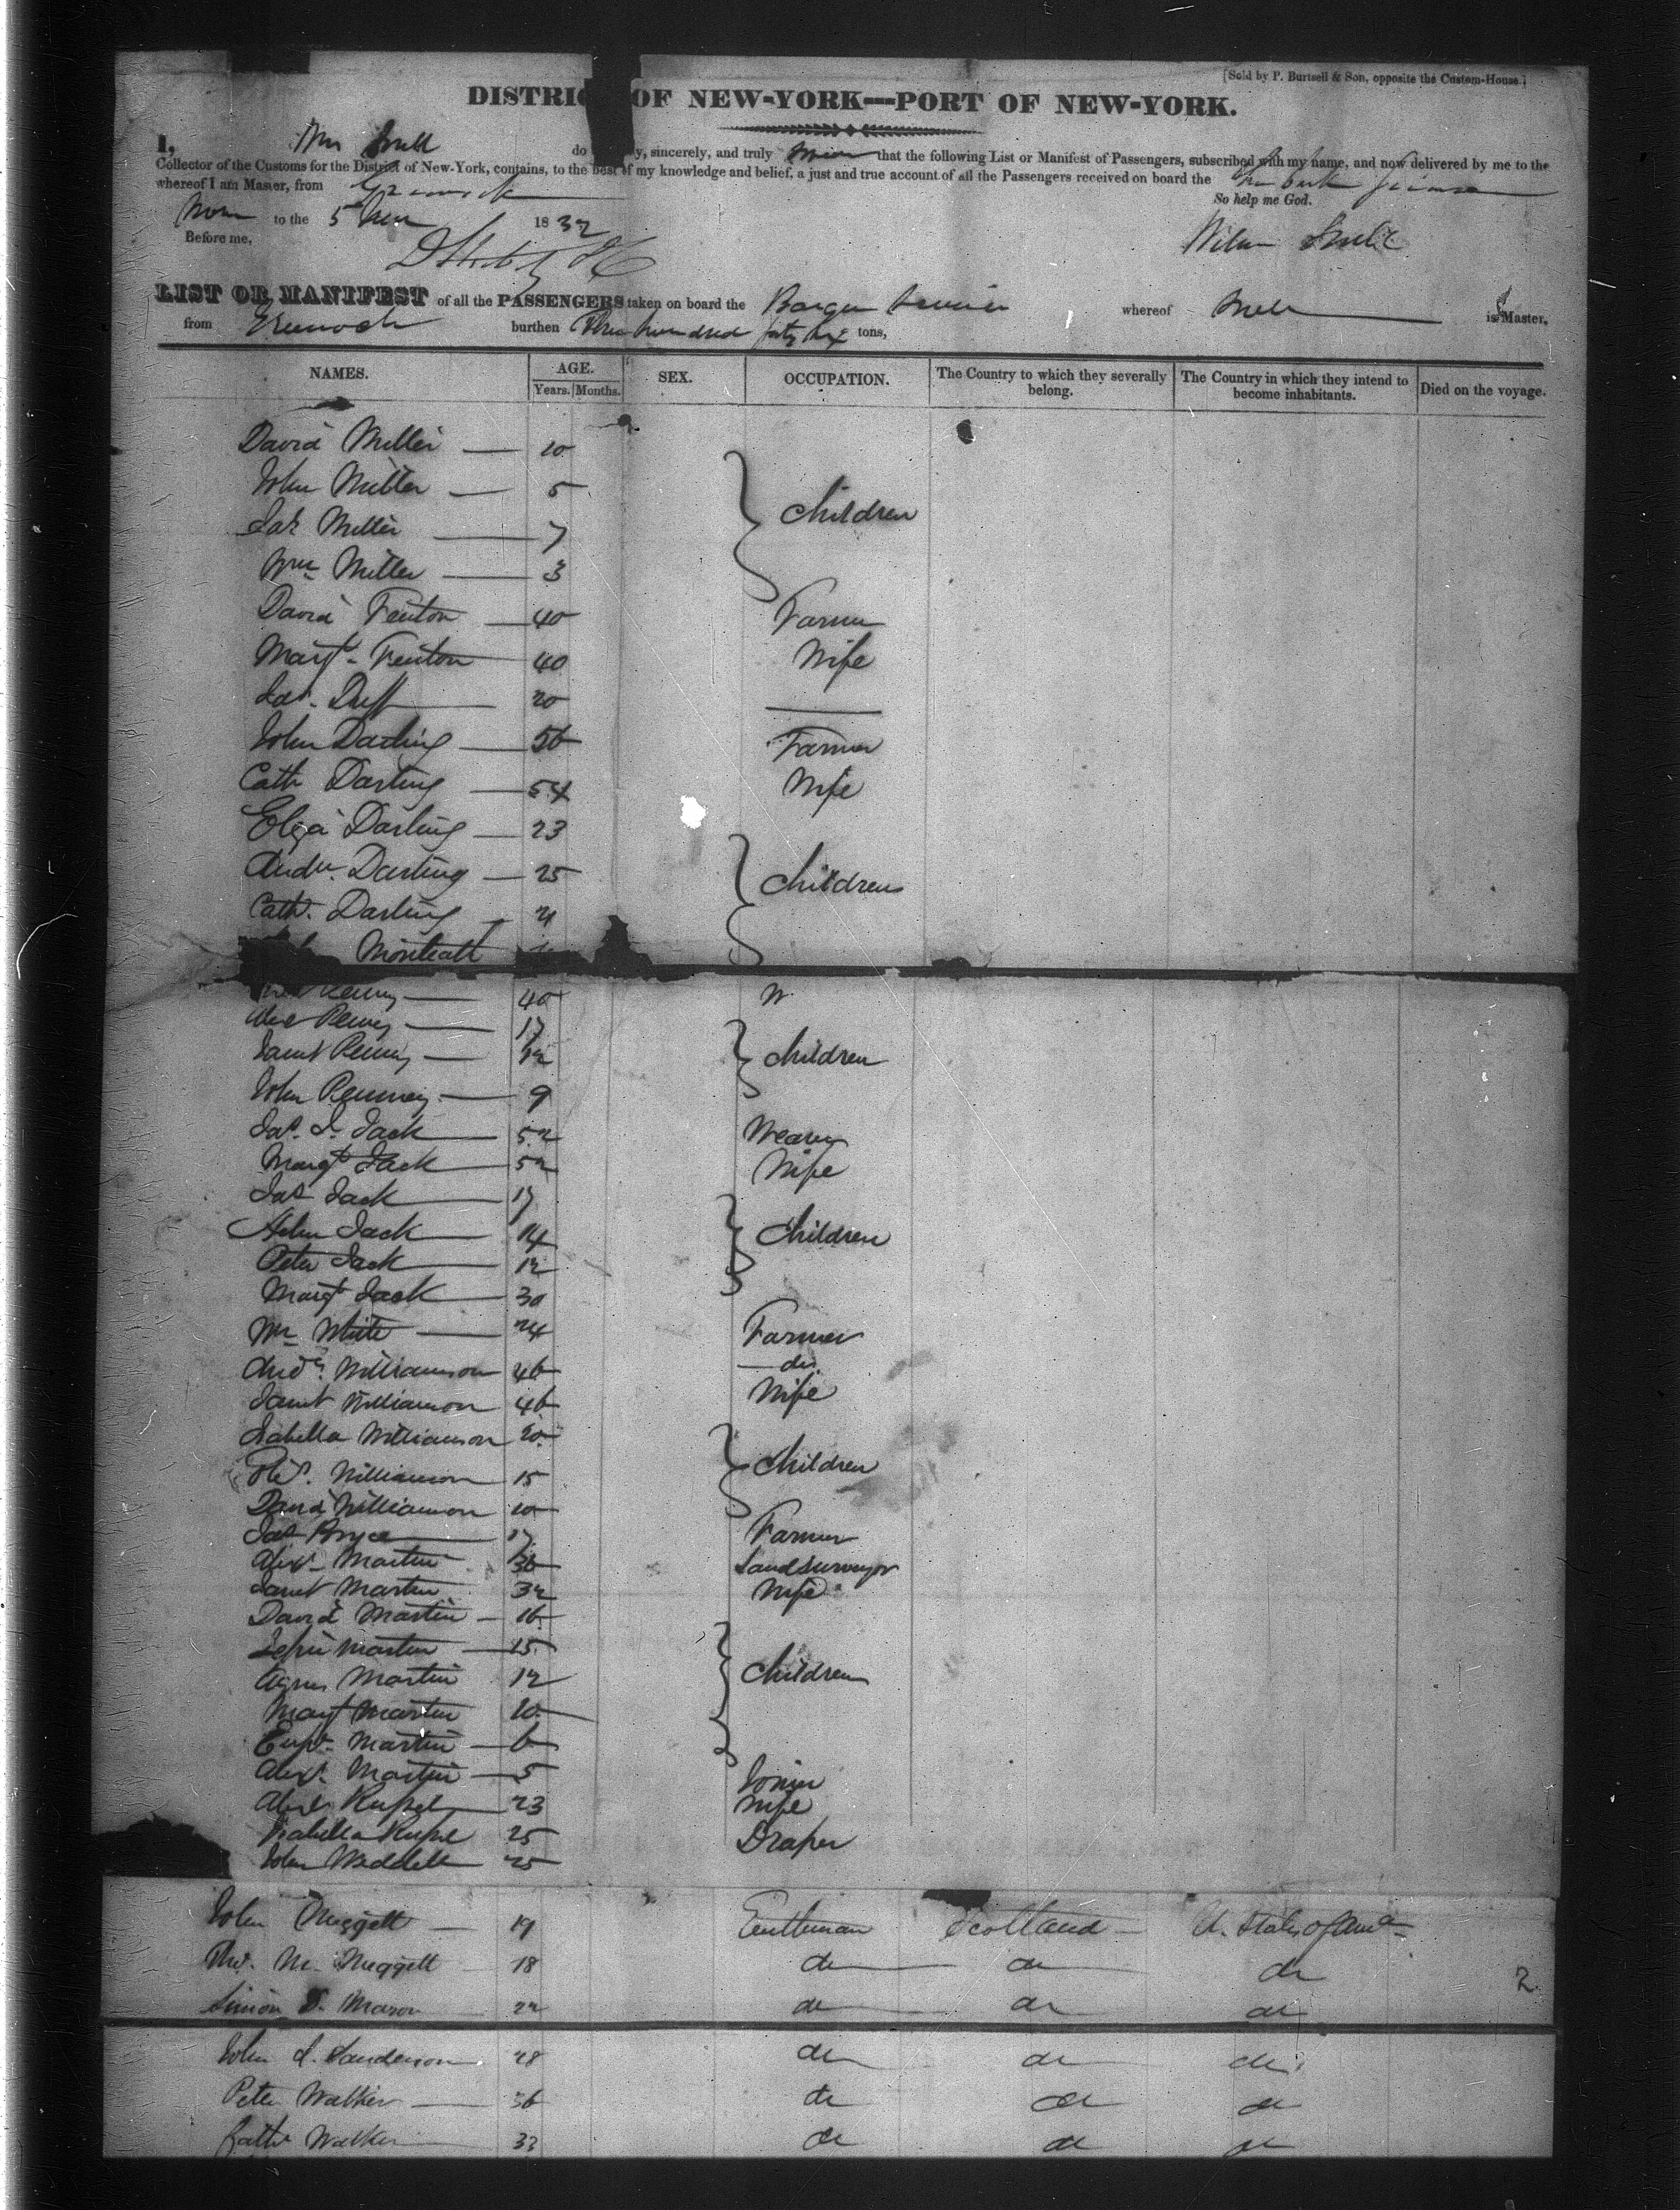 [Sold by P. Burtsell & Son, opposite the Custom-House.]
DISTRIC OF NEW-YORK—PORT OF NEW-YORK.
I, do y, sincerely, and truly that the following List or Manifest of Passengers, subscribed with my name, and now delivered by me to the
Collector of the Customs for the District of New-York, contains, to the best of my knowledge and belief, a just and true account of all the Passengers received on board the
whereof I am Master, from Greenock
So help me God.
to the 5 1832
Before me,
LIST OR MANIFEST of all the PASSENGERS taken on board the whereof is Master,
from Greenock burthen Three hundred forty six tons,
NAMES. AGE. SEX. OCCUPATION. The Country to which they severally belong. The Country in which they intend to become inhabitants. Died on the voyage.
Years. Months.
David Miller 10
John Miller 5
Children
Jas Miller 7
Wm Miller 3
David Fenton 40 Farmer
Margt Fenton 40 Wife
Jas. Duff 20
John Darling 56 Farmer
Cath Darling 54 Wife
Eliza Darling 23
Andw. Darling 25 Children
Cath. Darling 21
Monteath
40 W
Alex Penny 17
Janet Penny 12 Children
John Penney 9
Jas. Jack 52 Weaver
Margt Jack 52 Wife
Jas Jack 17
Jack 14 Children
Peter Jack 12
Margt Jack 30
Wm White 24 Farmer
Andw. Williamson 46 do.
Janet Williamson 46 Wife
Isabella Williamson 20
Williamson 15 Children
David Williamson 10
Jas Bryce 17 Farmer
Alexr Martin 36 Land surveyor
Janet Martin 32 Wife
David Martin 16
Martin 15
Agnes Martin 12 Children
Margt Martin 10
Eup. Martin 6
Alexr. Martin 5
Joiner
Alexr Russel 23 Wife
Isabella Russel 25 Draper
John Weddell 25
John Meggett 19 Gentleman Scotland U. States of Ama
Thos. M. Meggett 18 do do do
2
Simon Mason 22 do do do
John J. Sanderson 28 do do do
Peter Walker 36 do do do
Cathe Walker 33 do do do